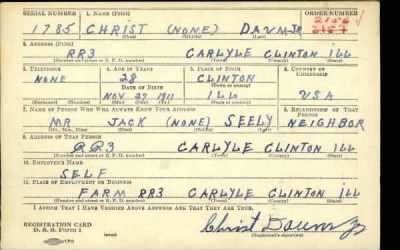 SERIAL NUMBER 1. NAME (Print) ORDER NUMBER
1785 CHRIST (NONE) DAUM JR 2156
(First) (Middle) (Last) 2157
2. ADDRESS (Print)
RR3 CARLYLE CLINTON ILL
(Number and street or R. F. D. number) (Town) (County) (State)
3. TELEPHONE 4. AGE IN YEARS 5. PLACE OF BIRTH 6. COUNTRY OF CITIZENSHIP
NONE 28 CLINTON
DATE OF BIRTH (Town or county)
NOV 27 1911 ILL USA
(Exchange) (Number) (Mo.) (Day) (Yr.) (State or country)
7. NAME OF PERSON WHO WILL ALWAYS KNOW YOUR ADDRESS 8. RELATIONSHIP OF THAT PERSON
MR JACK (NONE) SEELY NEIGHBOR
(Mr., Mrs., Miss) (First) (Middle) (Last)
9. ADDRESS OF THAT PERSON
RR3 CARLYLE CLINTON ILL
(Number and street or R. F. D. number) (Town) (County) (State)
10. EMPLOYER'S NAME
SELF
11. PLACE OF EMPLOYMENT OR BUSINESS
FARM RR3 CARLYLE CLINTON ILL
(Number and street or R. F. D. number) (Town) (County) (State)
I AFFIRM THAT I HAVE VERIFIED ABOVE ANSWERS AND THAT THEY ARE TRUE.
REGISTRATION CARD Christ Daum Jr
D. S. S. Form 1 (over) (Registrant's signature)